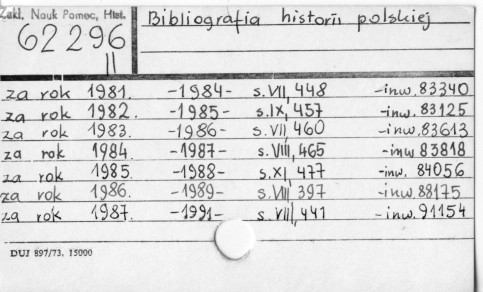 Zakł. Nauk Pomoc, Hist.
62296
II
Bibliografia historii polskiej
za rok 1981. -1984- s. VII, 448 -inw. 83340
za rok 1982. -1985- s. IX, 457 -inw. 83125
za rok 1983. -1986- s. VII, 460 -inw. 83613
za rok 1984. -1987- s. VIII, 465 -inw 83818
za rok 1985. -1988- s. XI, 477 -inw. 84056
za rok 1986. -1989- s. VIII 397 -inw. 88175
za rok 1987. -1991- s. VIII, 441 -inw. 91154
DUJ 897/73. 15000